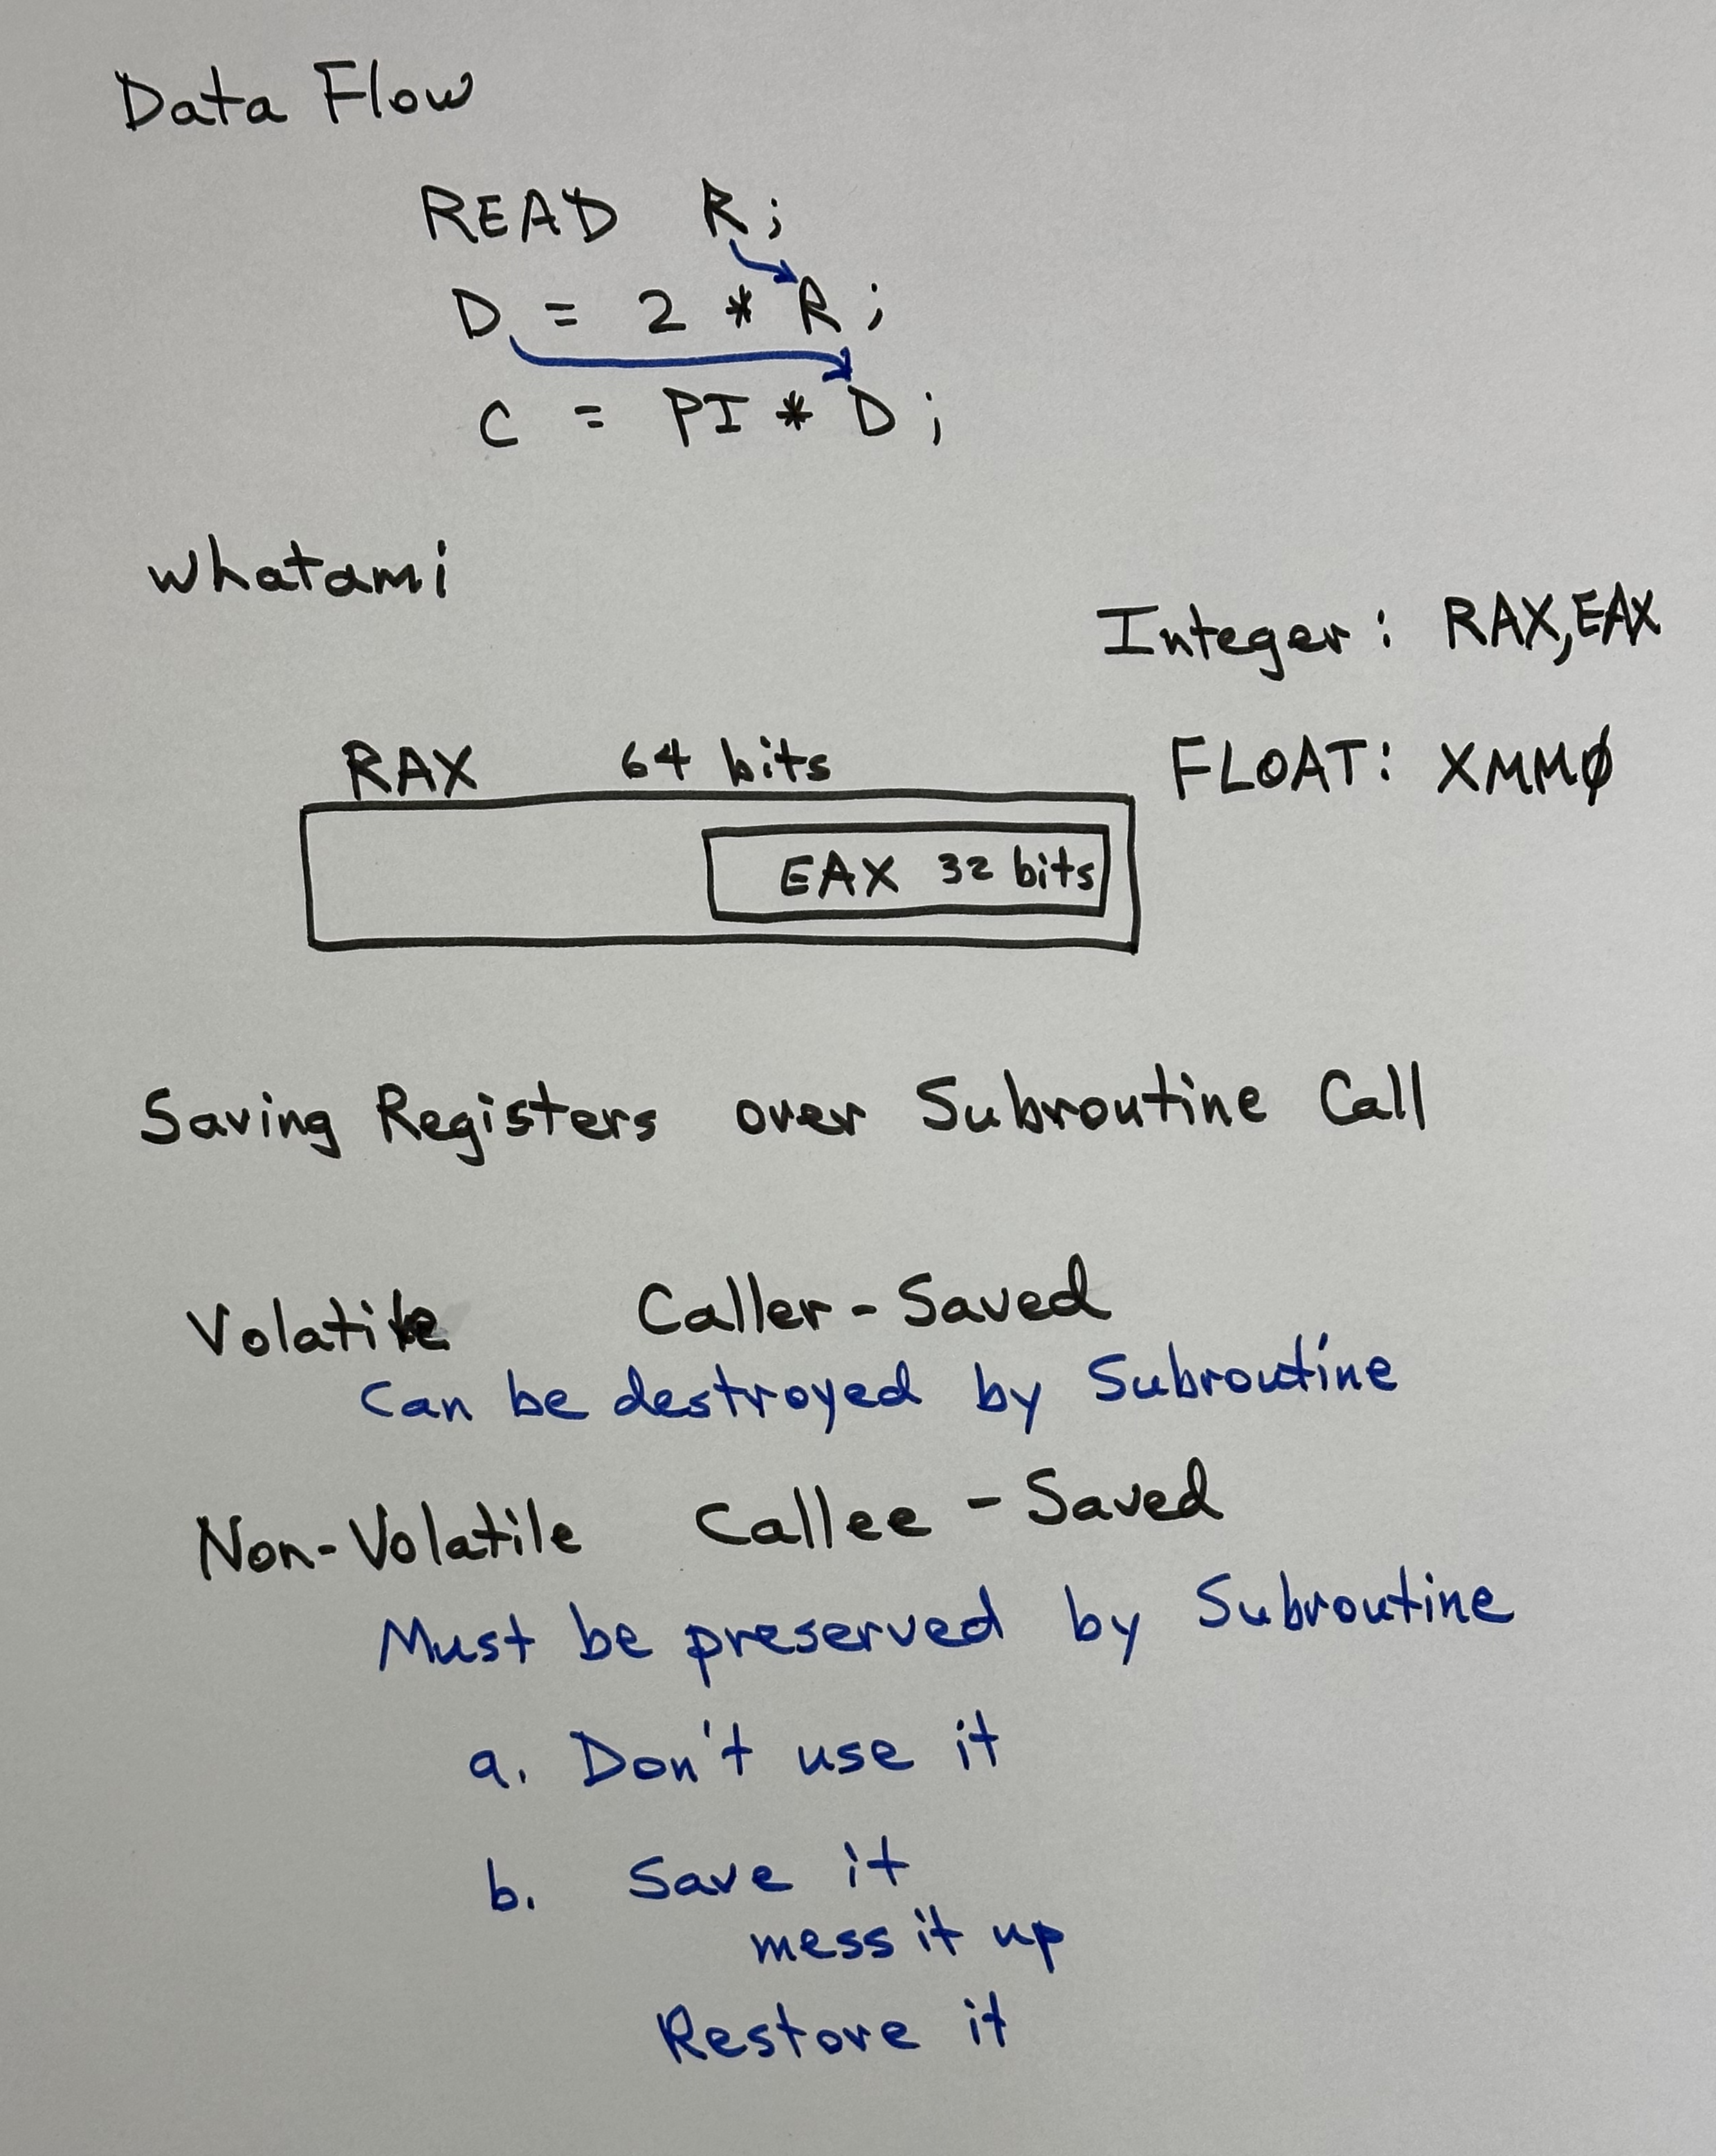 Data Flow
READ R;
D = 2 * R;
C = PI * D;
whatami
Integer: RAX, EAX
FLOAT: XMMØ
RAX 64 bits
EAX 32 bits
Saving Registers over Subroutine Call
Volatile Caller-Saved
Can be destroyed by Subroutine
Non-Volatile Callee-Saved
Must be preserved by Subroutine
a. Don't use it
b. Save it
mess it up
Restore it